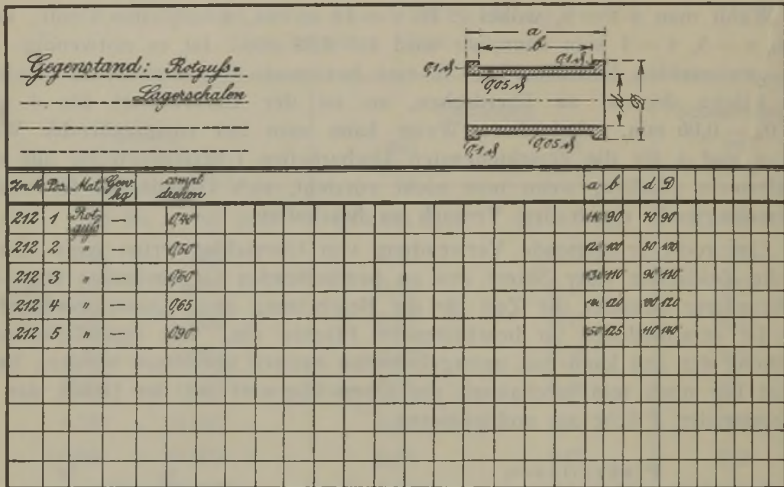 Gegenstand: Rotguß=
Lagerschalen
a
b
0,1 ℳ 0,1 ℳ
0,05 ℳ
d D
0,1 ℳ 0,05 ℳ
Zn.№ Pos. Mat. Gew. kg compl. drehen a b d D
212 1 Rotguß — 0,40 110 90 70 90
212 2 " — 0,50 120 100 80 100
212 3 " — 0,60 130 110 90 110
212 4 " — 0,65 120 100 120
212 5 " — 0,90 150 125 110 140